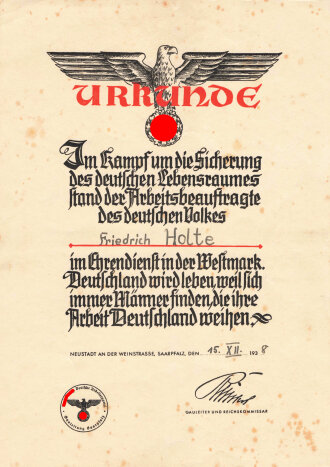 URKUNDE
Im Kampf um die Sicherung
des deutschen Lebensraumes
stand der Arbeitsbeauftragte
des deutschen Volkes
Friedrich Holte
im Ehrendienst in der Westmark.
Deutschland wird leben, weil sich
immer Männer finden, die ihre
Arbeit Deutschland weihen.
NEUSTADT AN DER WEINSTRASSE, SAARPFALZ, DEN 15. XII. 1938
GAULEITER UND REICHSKOMMISSAR